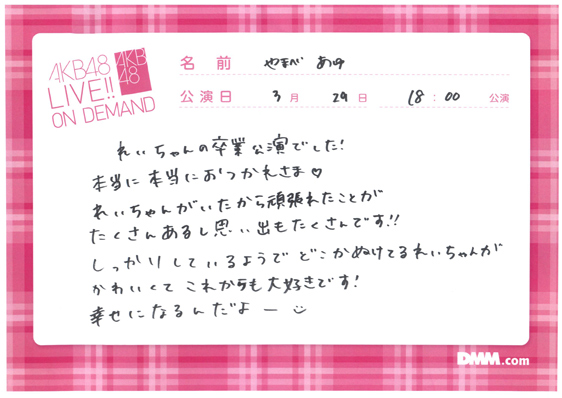 AKB48
LIVE!!
ON DEMAND
AKB
48
名前 やまべ あゆ
公演日 3月 29日 18:00 公演
れいちゃんの卒業公演でした!
本当に本当におつかれさま♡
れいちゃんがいたから頑張れたことが
たくさんあるし思い出もたくさんです!!
しっかりしているようでどこかぬけてるれいちゃんが
かわいくてこれからも大好きです!
幸せになるんだよー
DMM.com